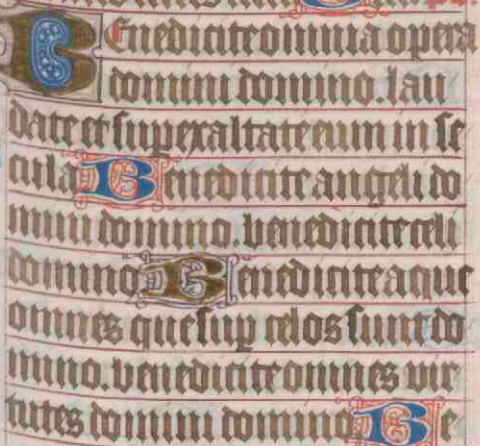 Benedicite omnia opera
domini domino. lau
date et superexaltate eum in se
cula Benedicite angeli do
mini domino. benedicite celi
domino Benedicite aque
omnes que sup celos sunt do
mino. benedicite omnes vir
tutes domini domino Be